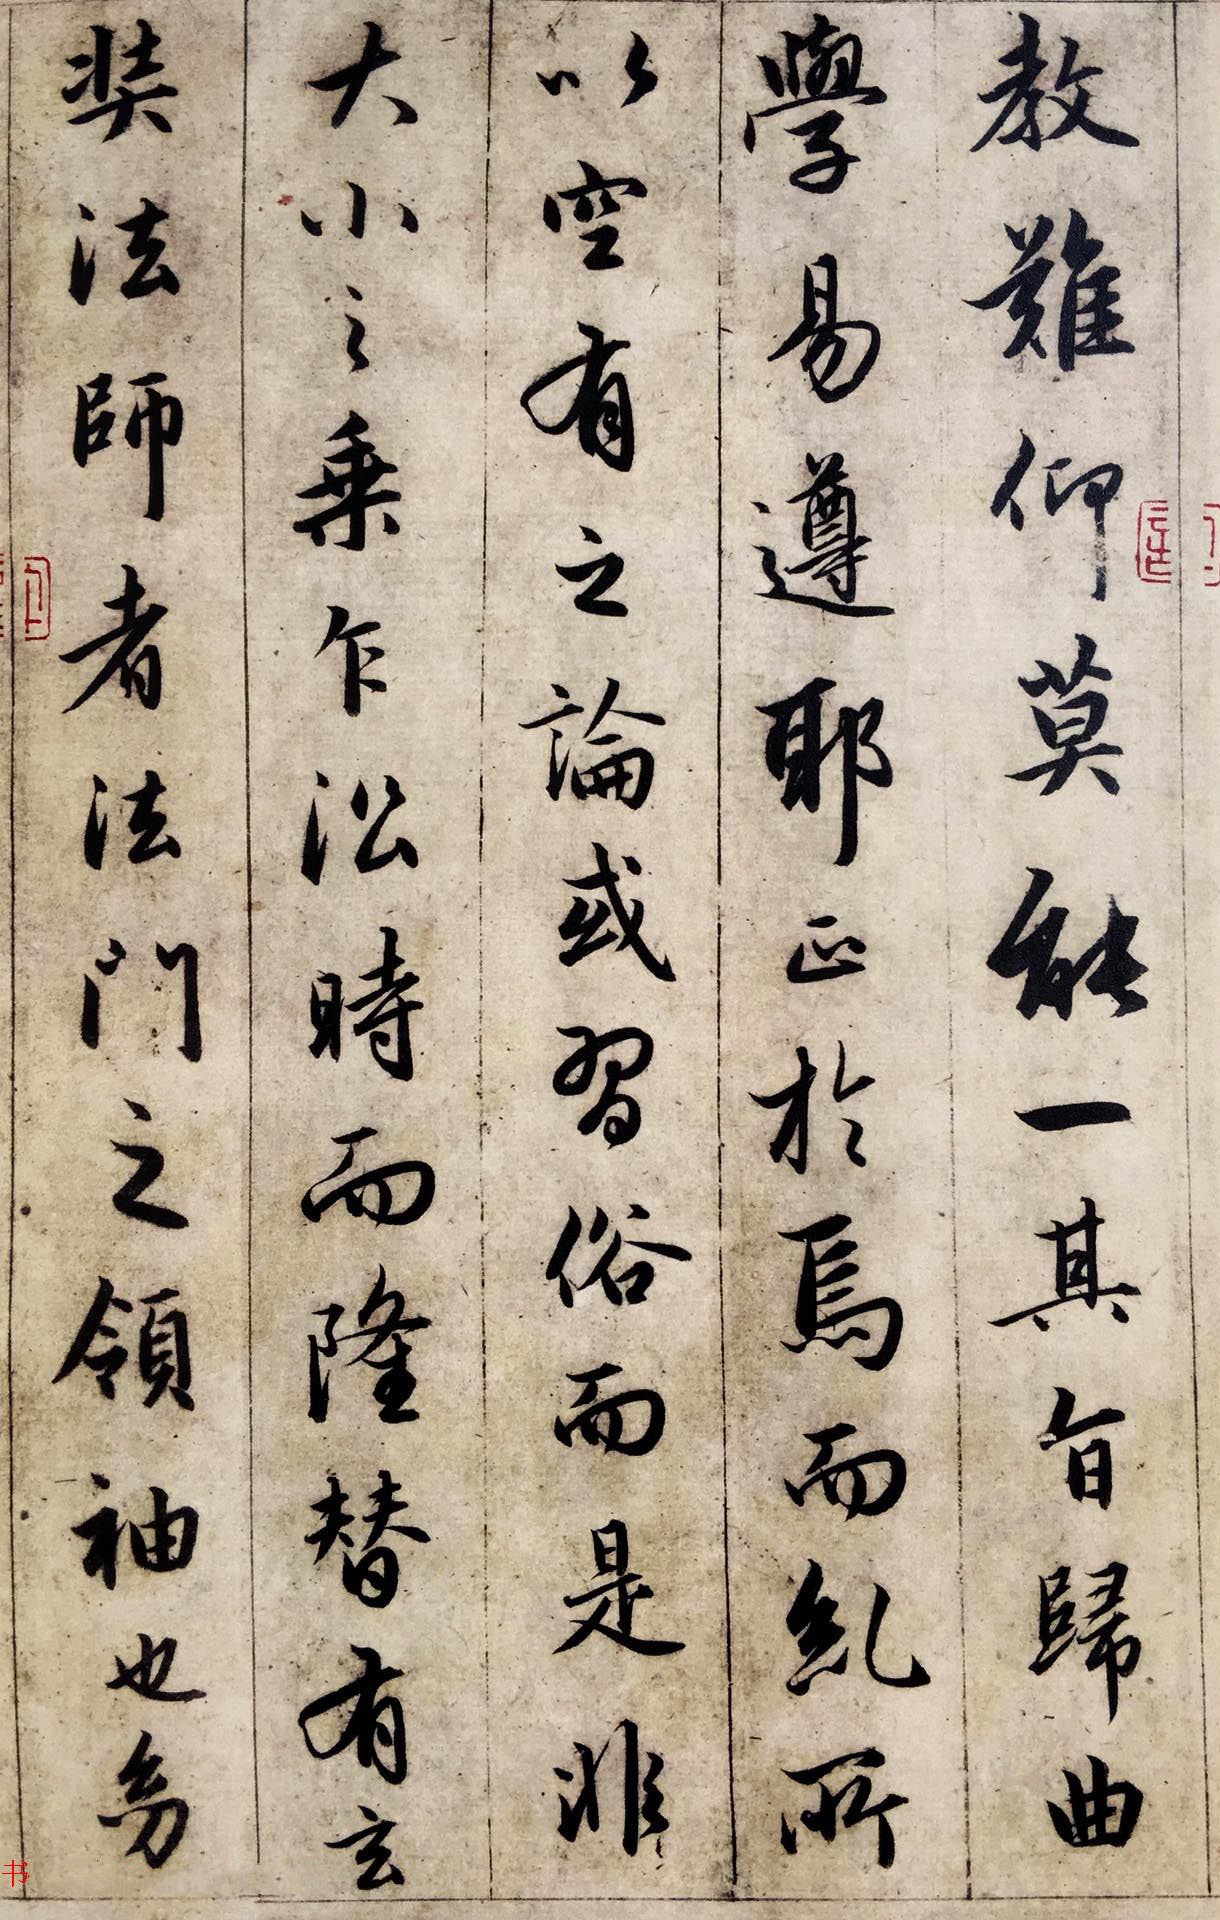 教難仰莫能一其旨歸曲
學易遵耶正於焉而糺所
以空有之論或習俗而是非
大小之乘乍沿時而隆替有玄
奘法師者法門之領袖也幼
书